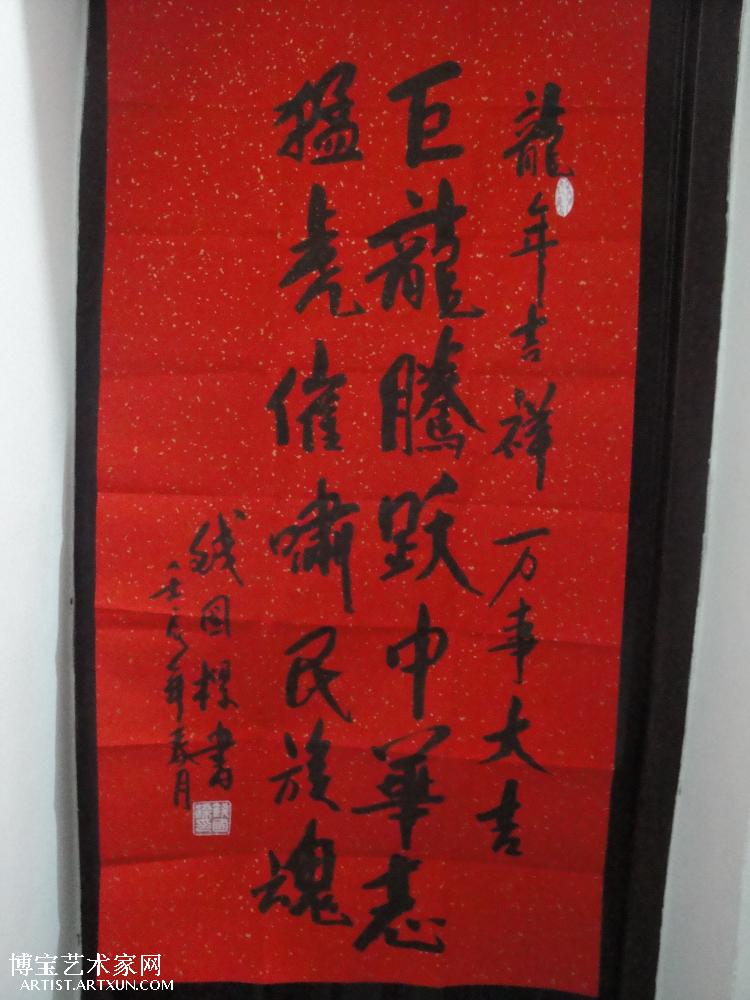 龍年吉祥 万事大吉
巨龍騰跃中華志
猛虎催嘯民族魂
国樑書
壬辰年春月
博宝艺术家网
ARTIST.ARTXUN.COM